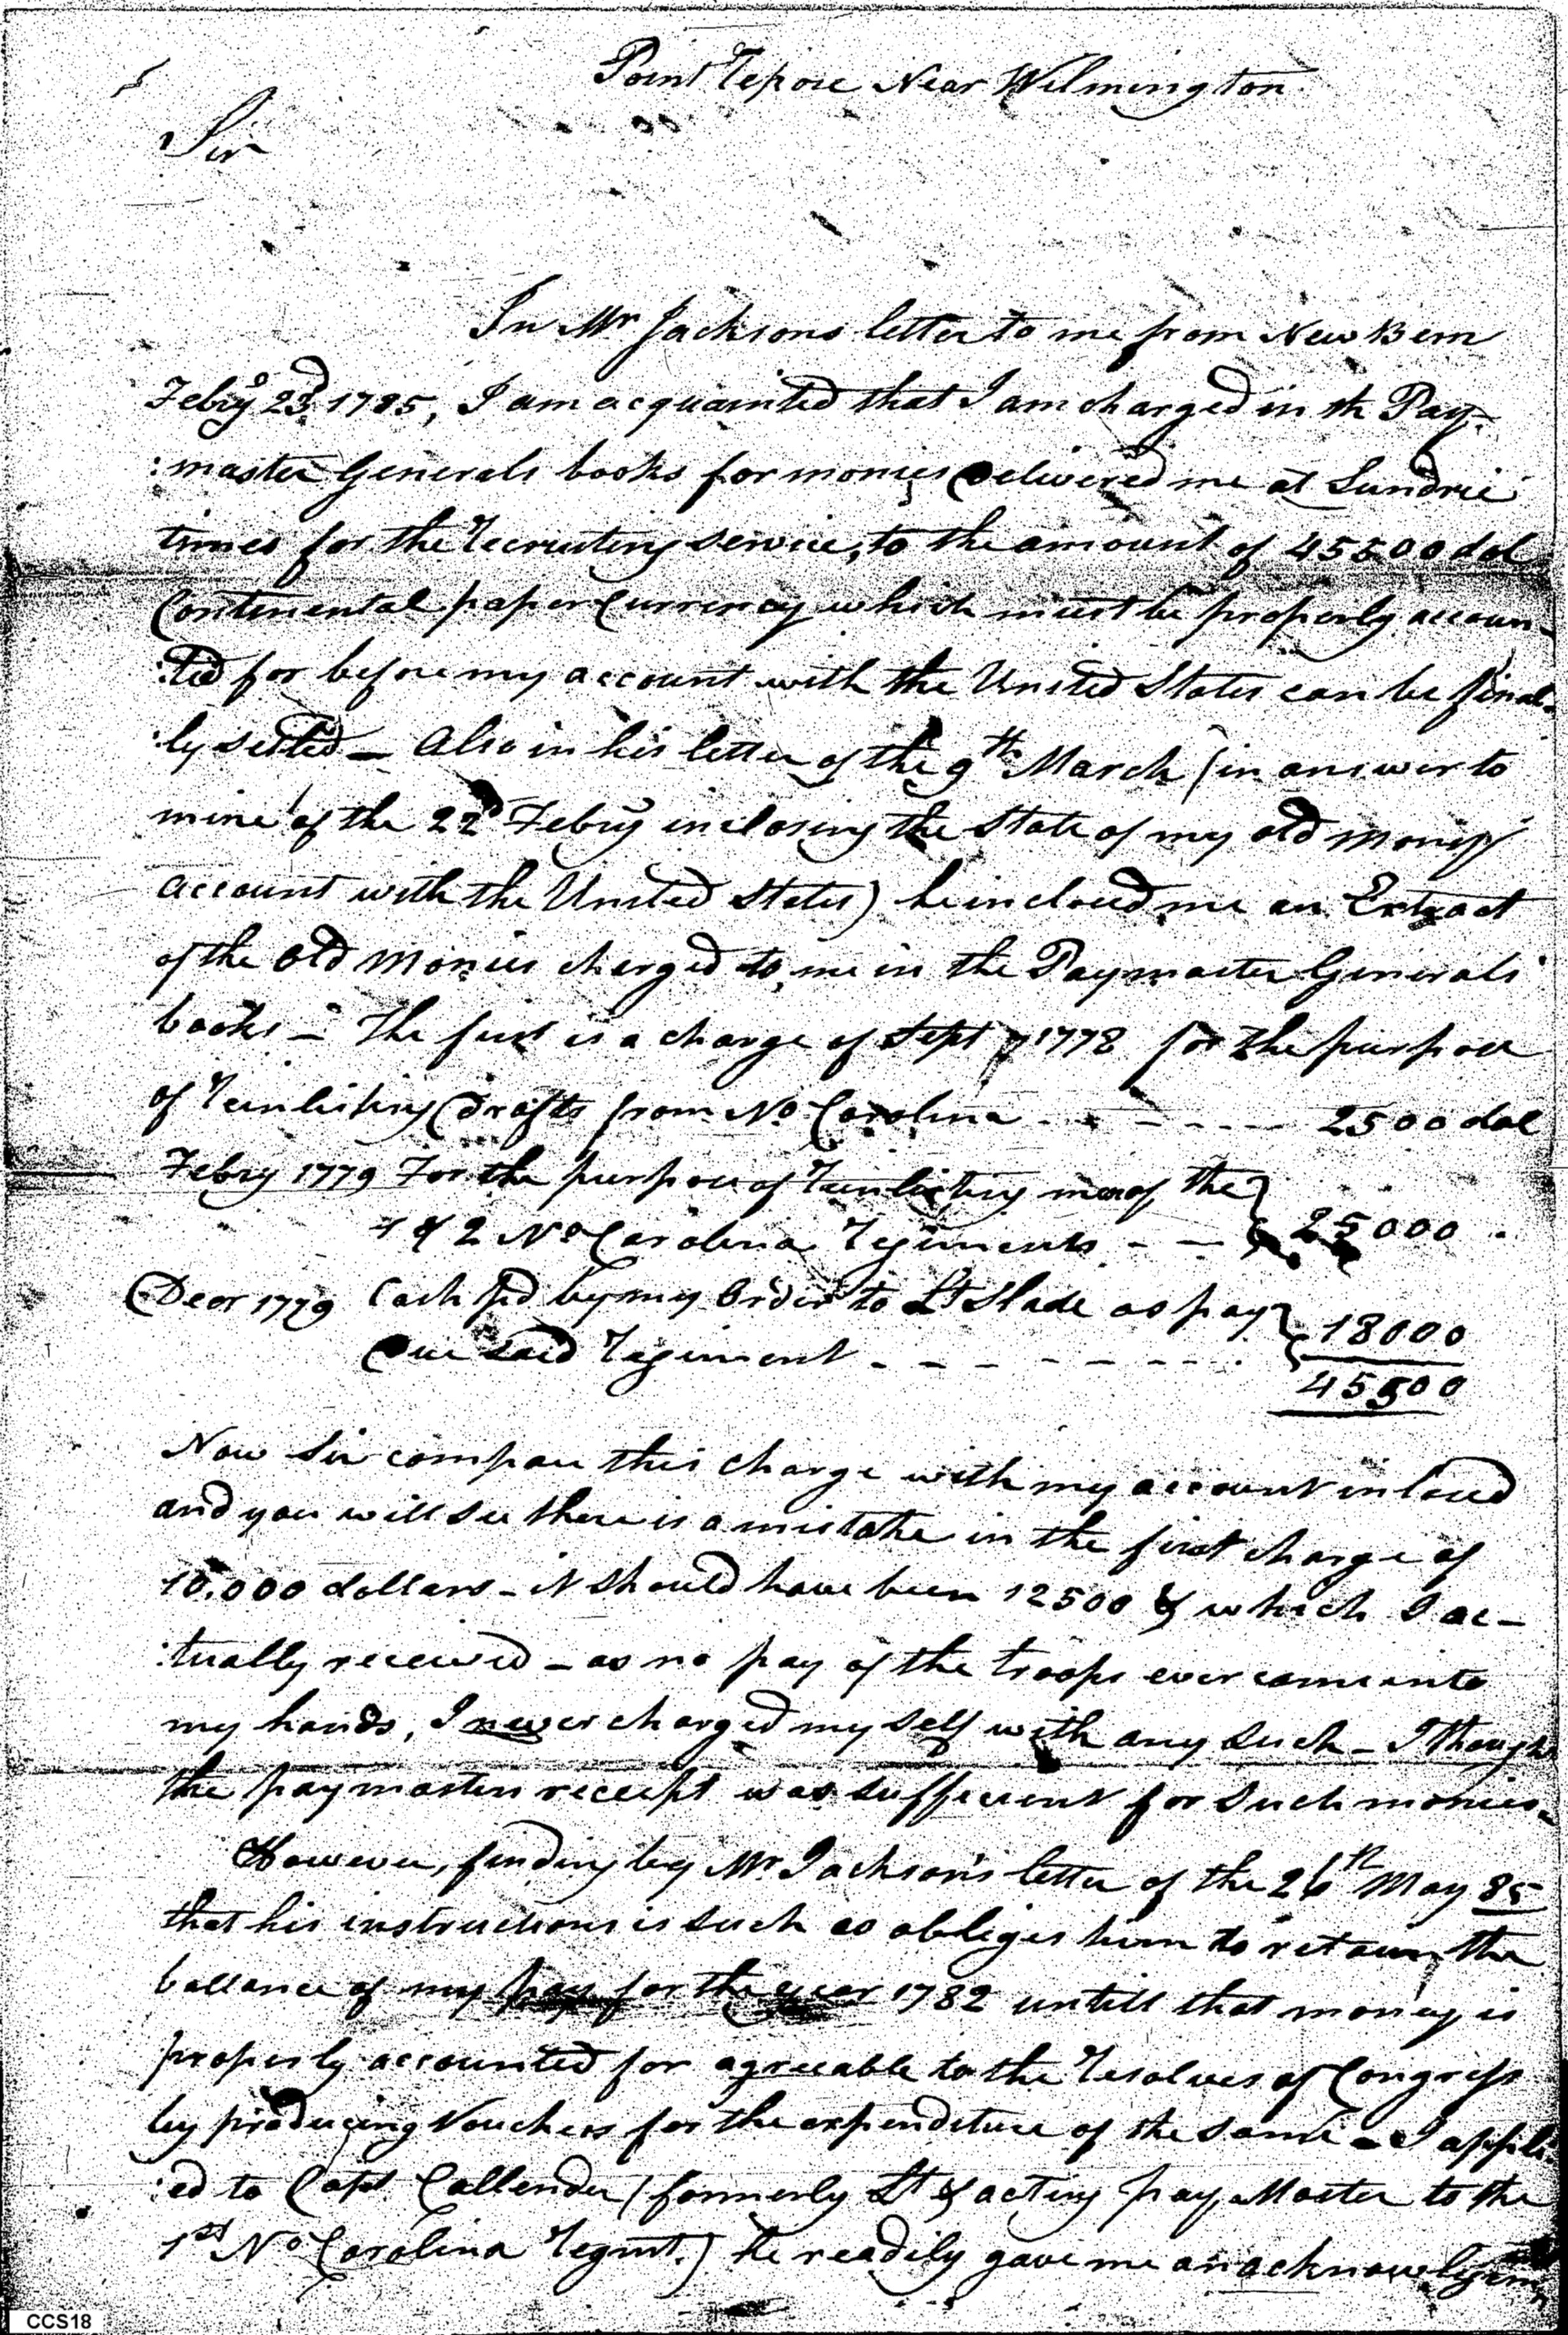 Point Repose Near Wilmington
Sir
In Mr Jacksons letter to me from New Bern
Febry 23d 1785, I am acquainted that I am charged in th Pay-
:master Generals books for monies Delivered me at Sundrie
times for the Recruiting service, to the amount of 45500 dol
Continental paper Currency which must be properly accoun-
:ted for before my account with the United States can be final-
:ly setled - Also in his letter of the 9th March (in answer to
mine of the 22d Febry inclosing the State of my old money
account with the United States) he inclosed me an Extract
of the Old Monies charged to me in the Paymaster Generals
books - The first is a charge of Sept 7 1778 for the purpose
of Reinlisting Drafts from No Carolina - - - - - - 2500 dol
Febry 1779 For the purpose of Reinlisting men of the } 25000
1 & 2 No Carolina Regiments - -
Decr 1779 Cash pd by my Order to Lt Slade as pay } 18000
Due said Regiment - - - - - - - -
45500
Now Sir compare this charge with my account inclosed
and you will see there is a mistake in the first charge of
10.000 dollars - it should have been 12500 & which I ac-
:tually received - as no pay of the troops ever came into
my hands, I never charged my self with any such - I though
the paymasters receipt was sufficient for such monies-
However, finding by Mr Jackson's letter of the 26th May 85
that his instructions is such as obliges him to retain the
ballance of my pay for the year 1782 untill that money is
properly accounted for agreeable to the Resolves of Congress
by producing Vouchers for the expenditure of the same - I appli
:ed to Capt Callender (formerly Lt & acting pay Master to the
1st No Carolina Regmt.) he readily gave me an acknowlegem
CCS18